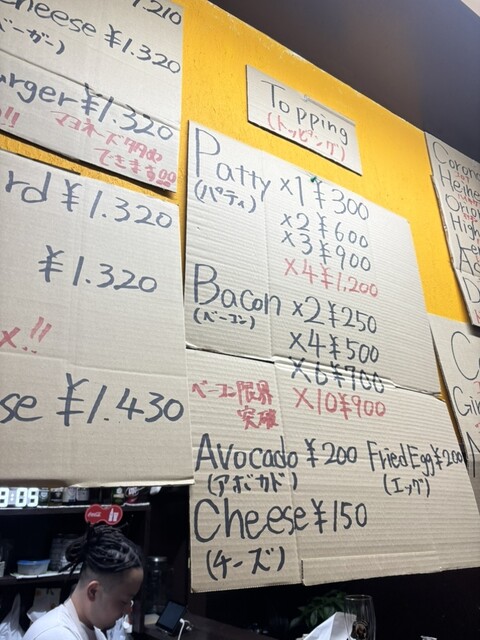 1.210
cheese ¥1.320
バーガー)
urger ¥1.320
!! マヨネーズ多め
できます!!
rd ¥1.320
¥1.320
!!
se ¥1.430
Topping
(トッピング)
Patty ×1 ¥300
(パティ) ×2 ¥600
×3 ¥900
×4 ¥1,200
Bacon ×2 ¥250
(ベーコン) ×4 ¥500
×6 ¥700
ベーコン限界 ×10 ¥900
突破
Avocado ¥200 Fried Egg ¥200
(アボカド) (エッグ)
Cheese ¥150
(チーズ)
Corona
Heine
High